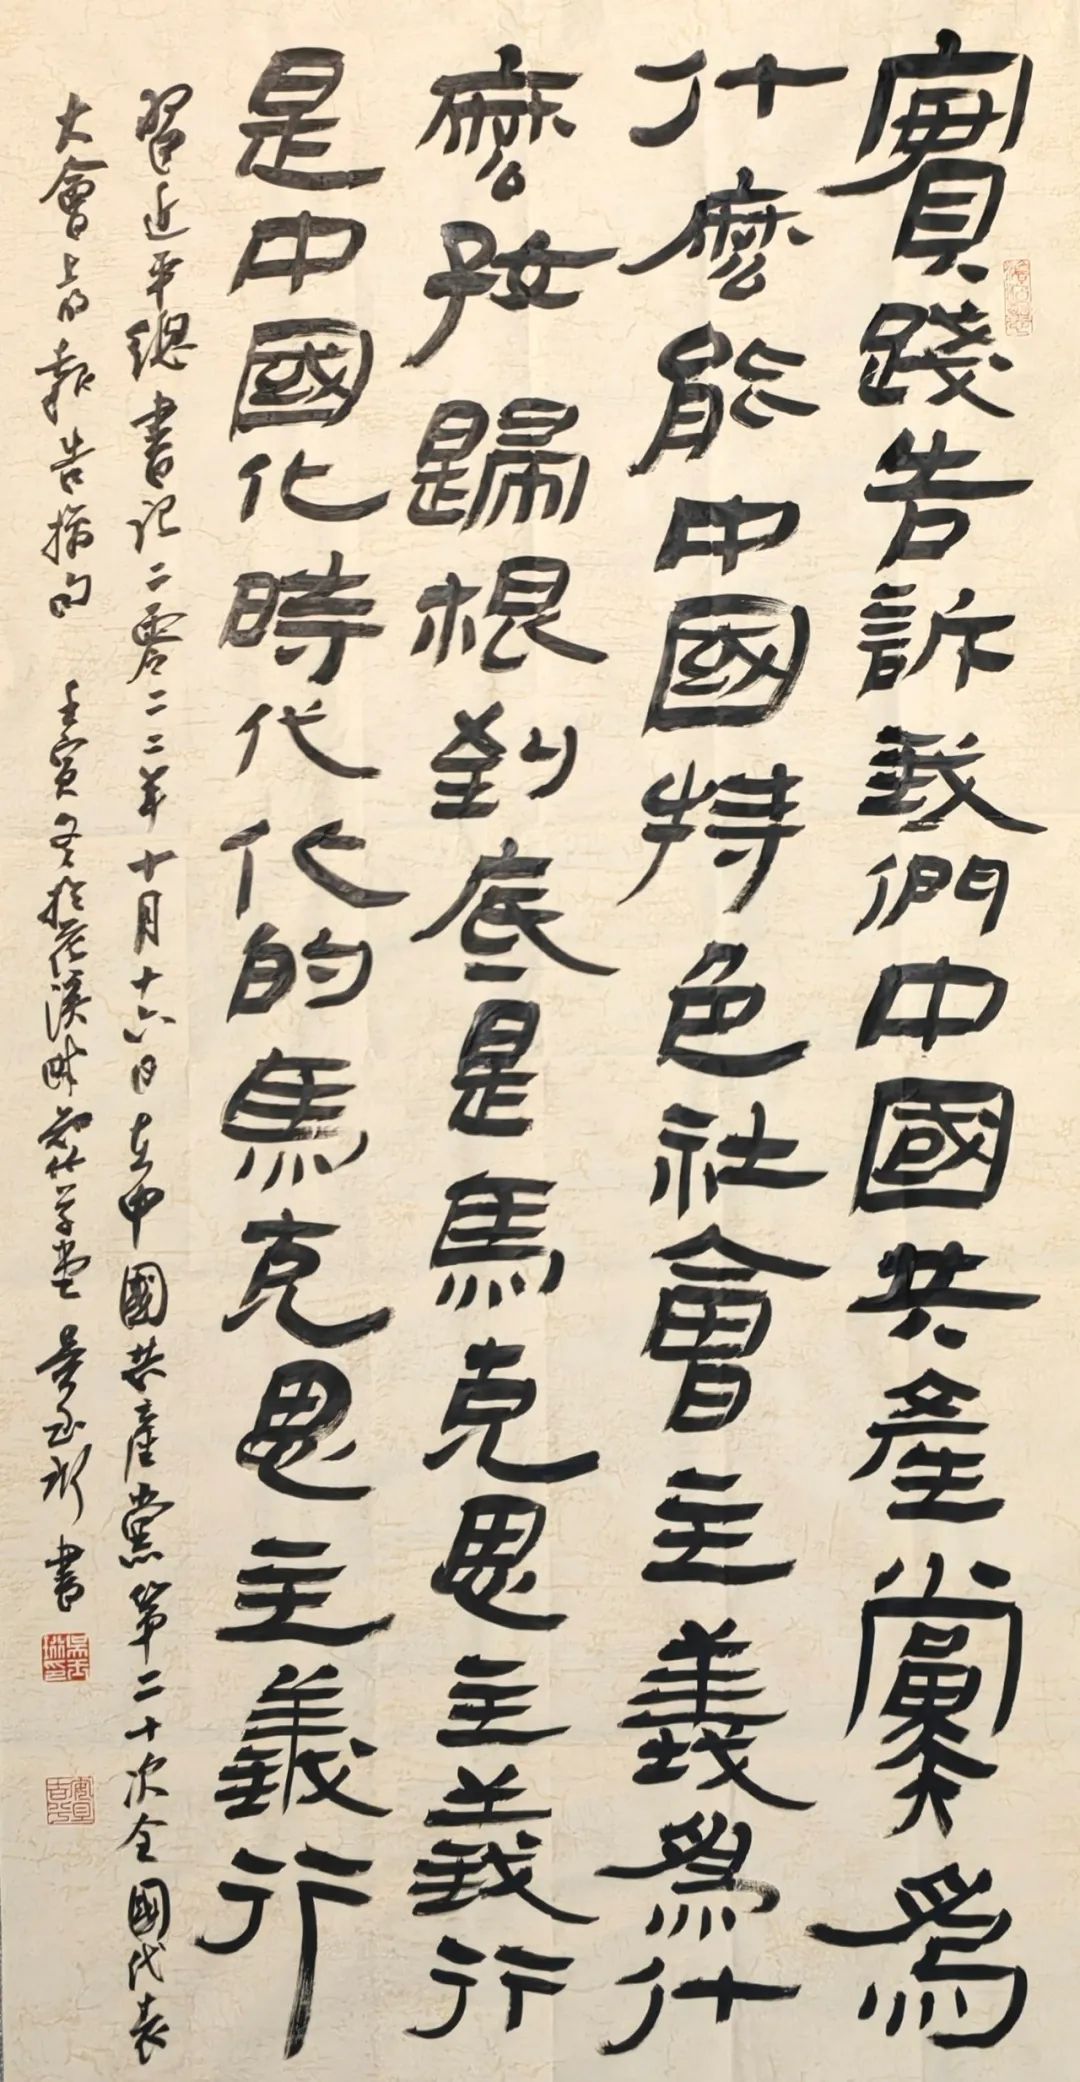 實踐告訴我們中國共產黨爲
什麼能中國特色社會主義爲什
麼好歸根到底是馬克思主義行
是中國化時代化的馬克思主義行
習近平總書記二零二二年十月十六日在中國共產黨第二十次全國代表
大會上的報告摘句 壬寅冬於花溪畔 學堂 書